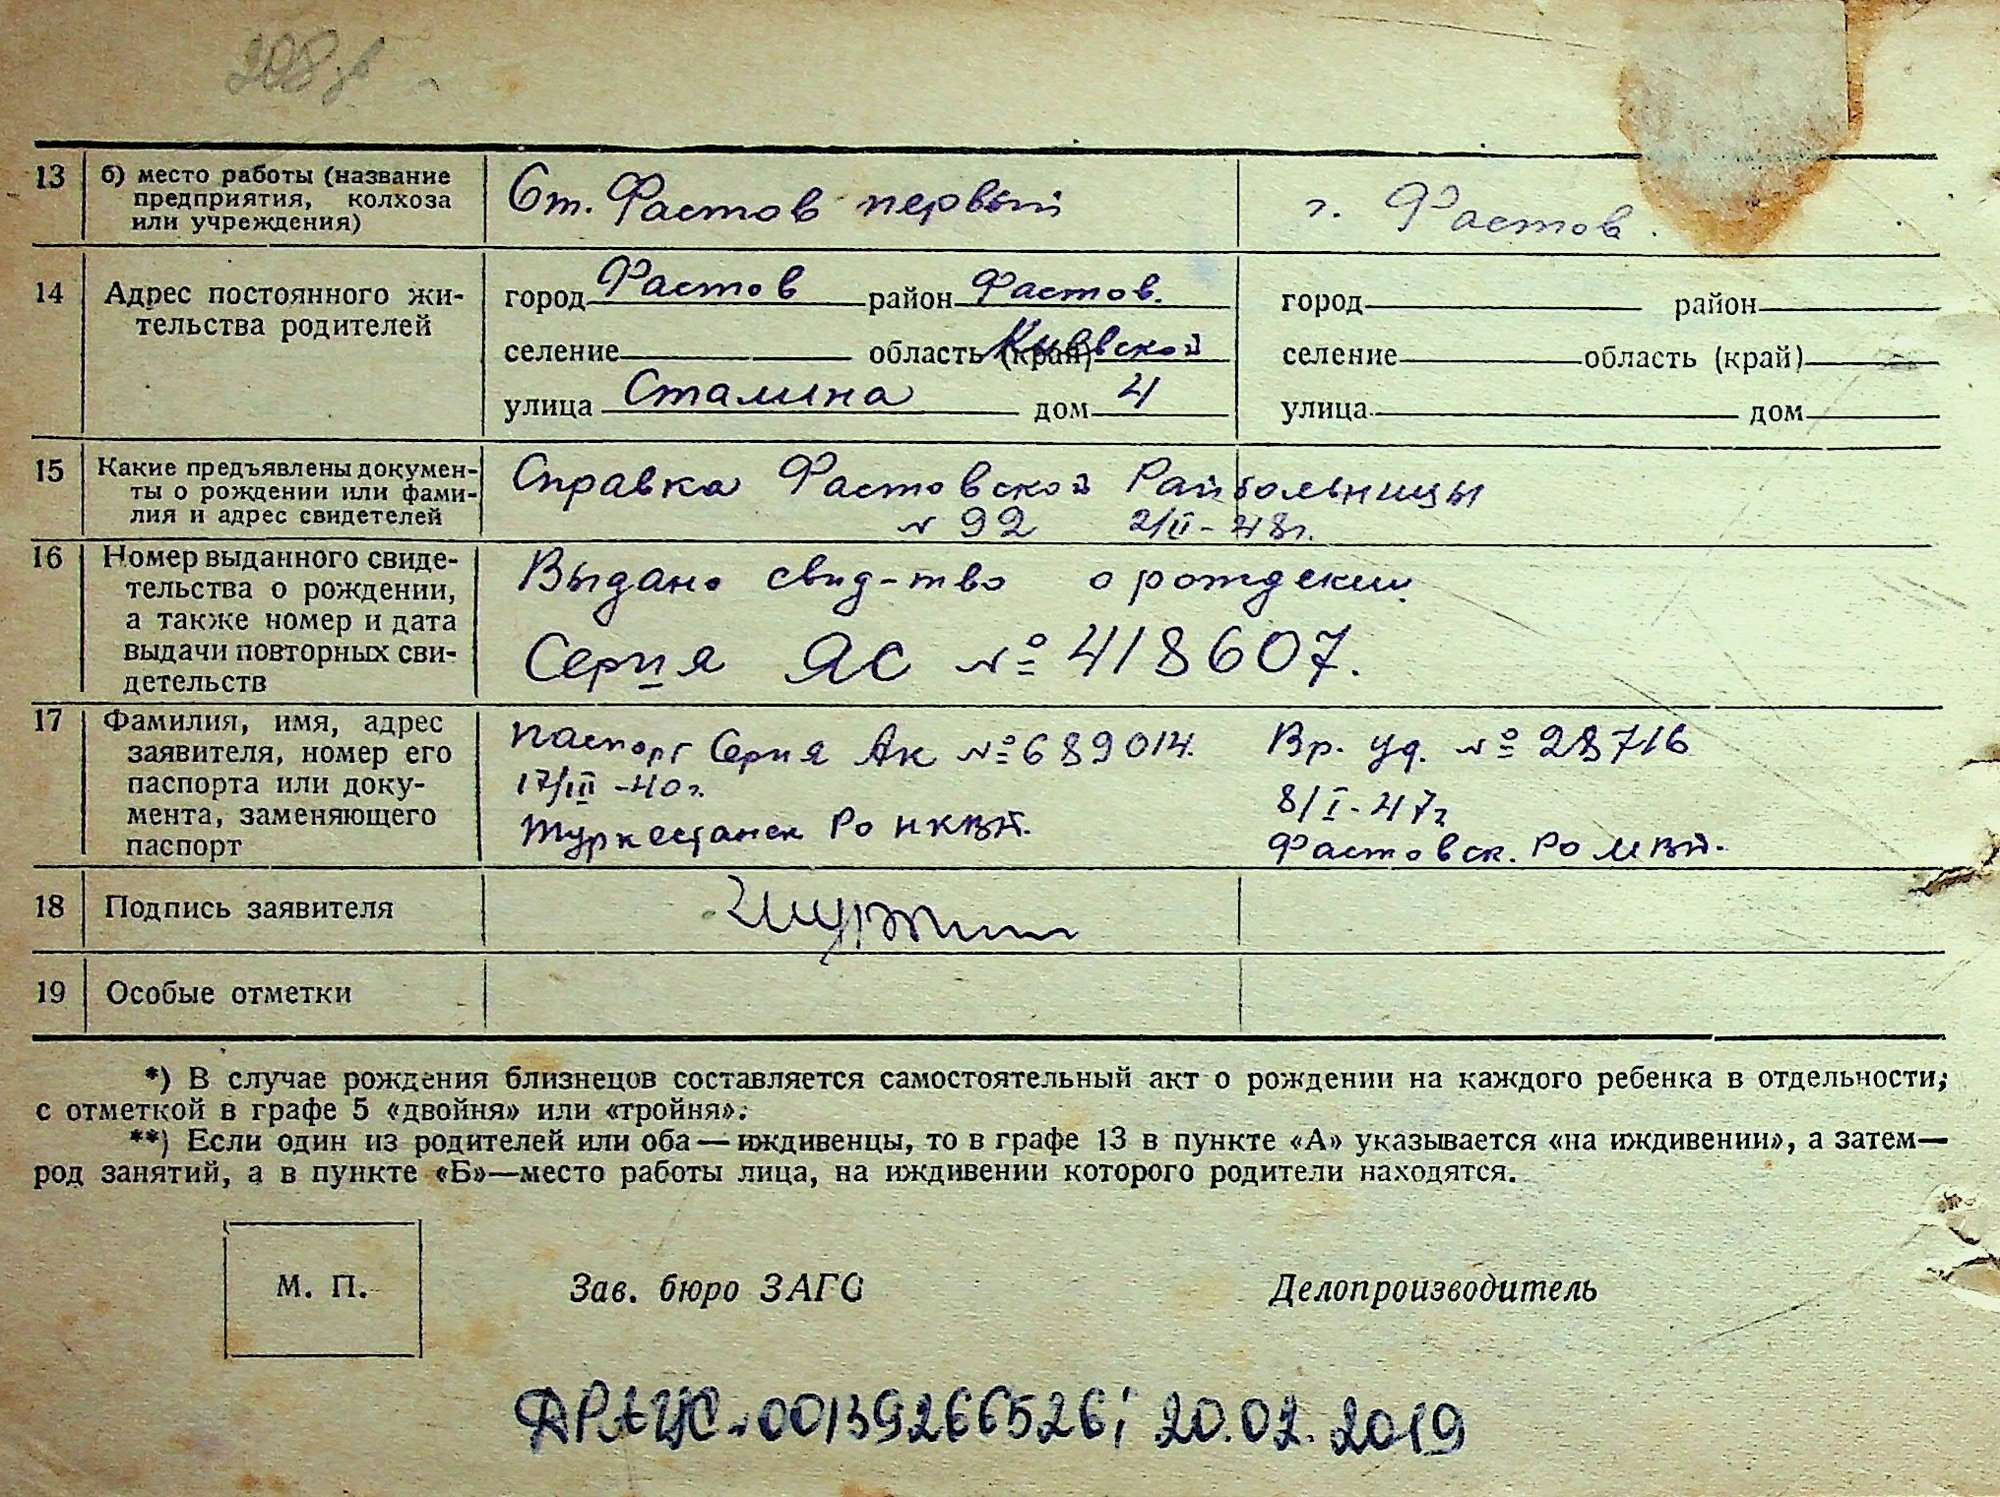 208
13 б) место работы (название Ст. Фастов первый г. Фастов.
предприятия, колхоза
или учреждения)
14 Адрес постоянного жи- город Фастов район Фастов. город район
тельства родителей
селение область (край) Киевской селение область (край)
улица Сталина дом 4 улица дом
15 Какие предъявлены докумен- Справка Фастовской Райбольницы
ты о рождении или фами- № 92 2/II-48г.
лия и адрес свидетелей
16 Номер выданного свиде- Выдано свид-тво о рождении.
тельства о рождении,
а также номер и дата Серия ЯС № 418607.
выдачи повторных сви-
детельств
17 Фамилия, имя, адрес Паспорт Серия Ак № 689014. Вр. уд. № 28716
заявителя, номер его
паспорта или доку- 17/III-40г. 8/I-47г
мента, заменяющего Туркестанск Ро НКВД. Фастовск. Ро МВД.
паспорт
18 Подпись заявителя
19 Особые отметки
*) В случае рождения близнецов составляется самостоятельный акт о рождении на каждого ребенка в отдельности;
с отметкой в графе 5 «двойня» или «тройня».
**) Если один из родителей или оба — иждивенцы, то в графе 13 в пункте «А» указывается «на иждивении», а затем—
род занятий, а в пункте «Б»—место работы лица, на иждивении которого родители находятся.
М. П. Зав. бюро ЗАГС Делопроизводитель
ДРАЦС 00139266526; 20.02.2019